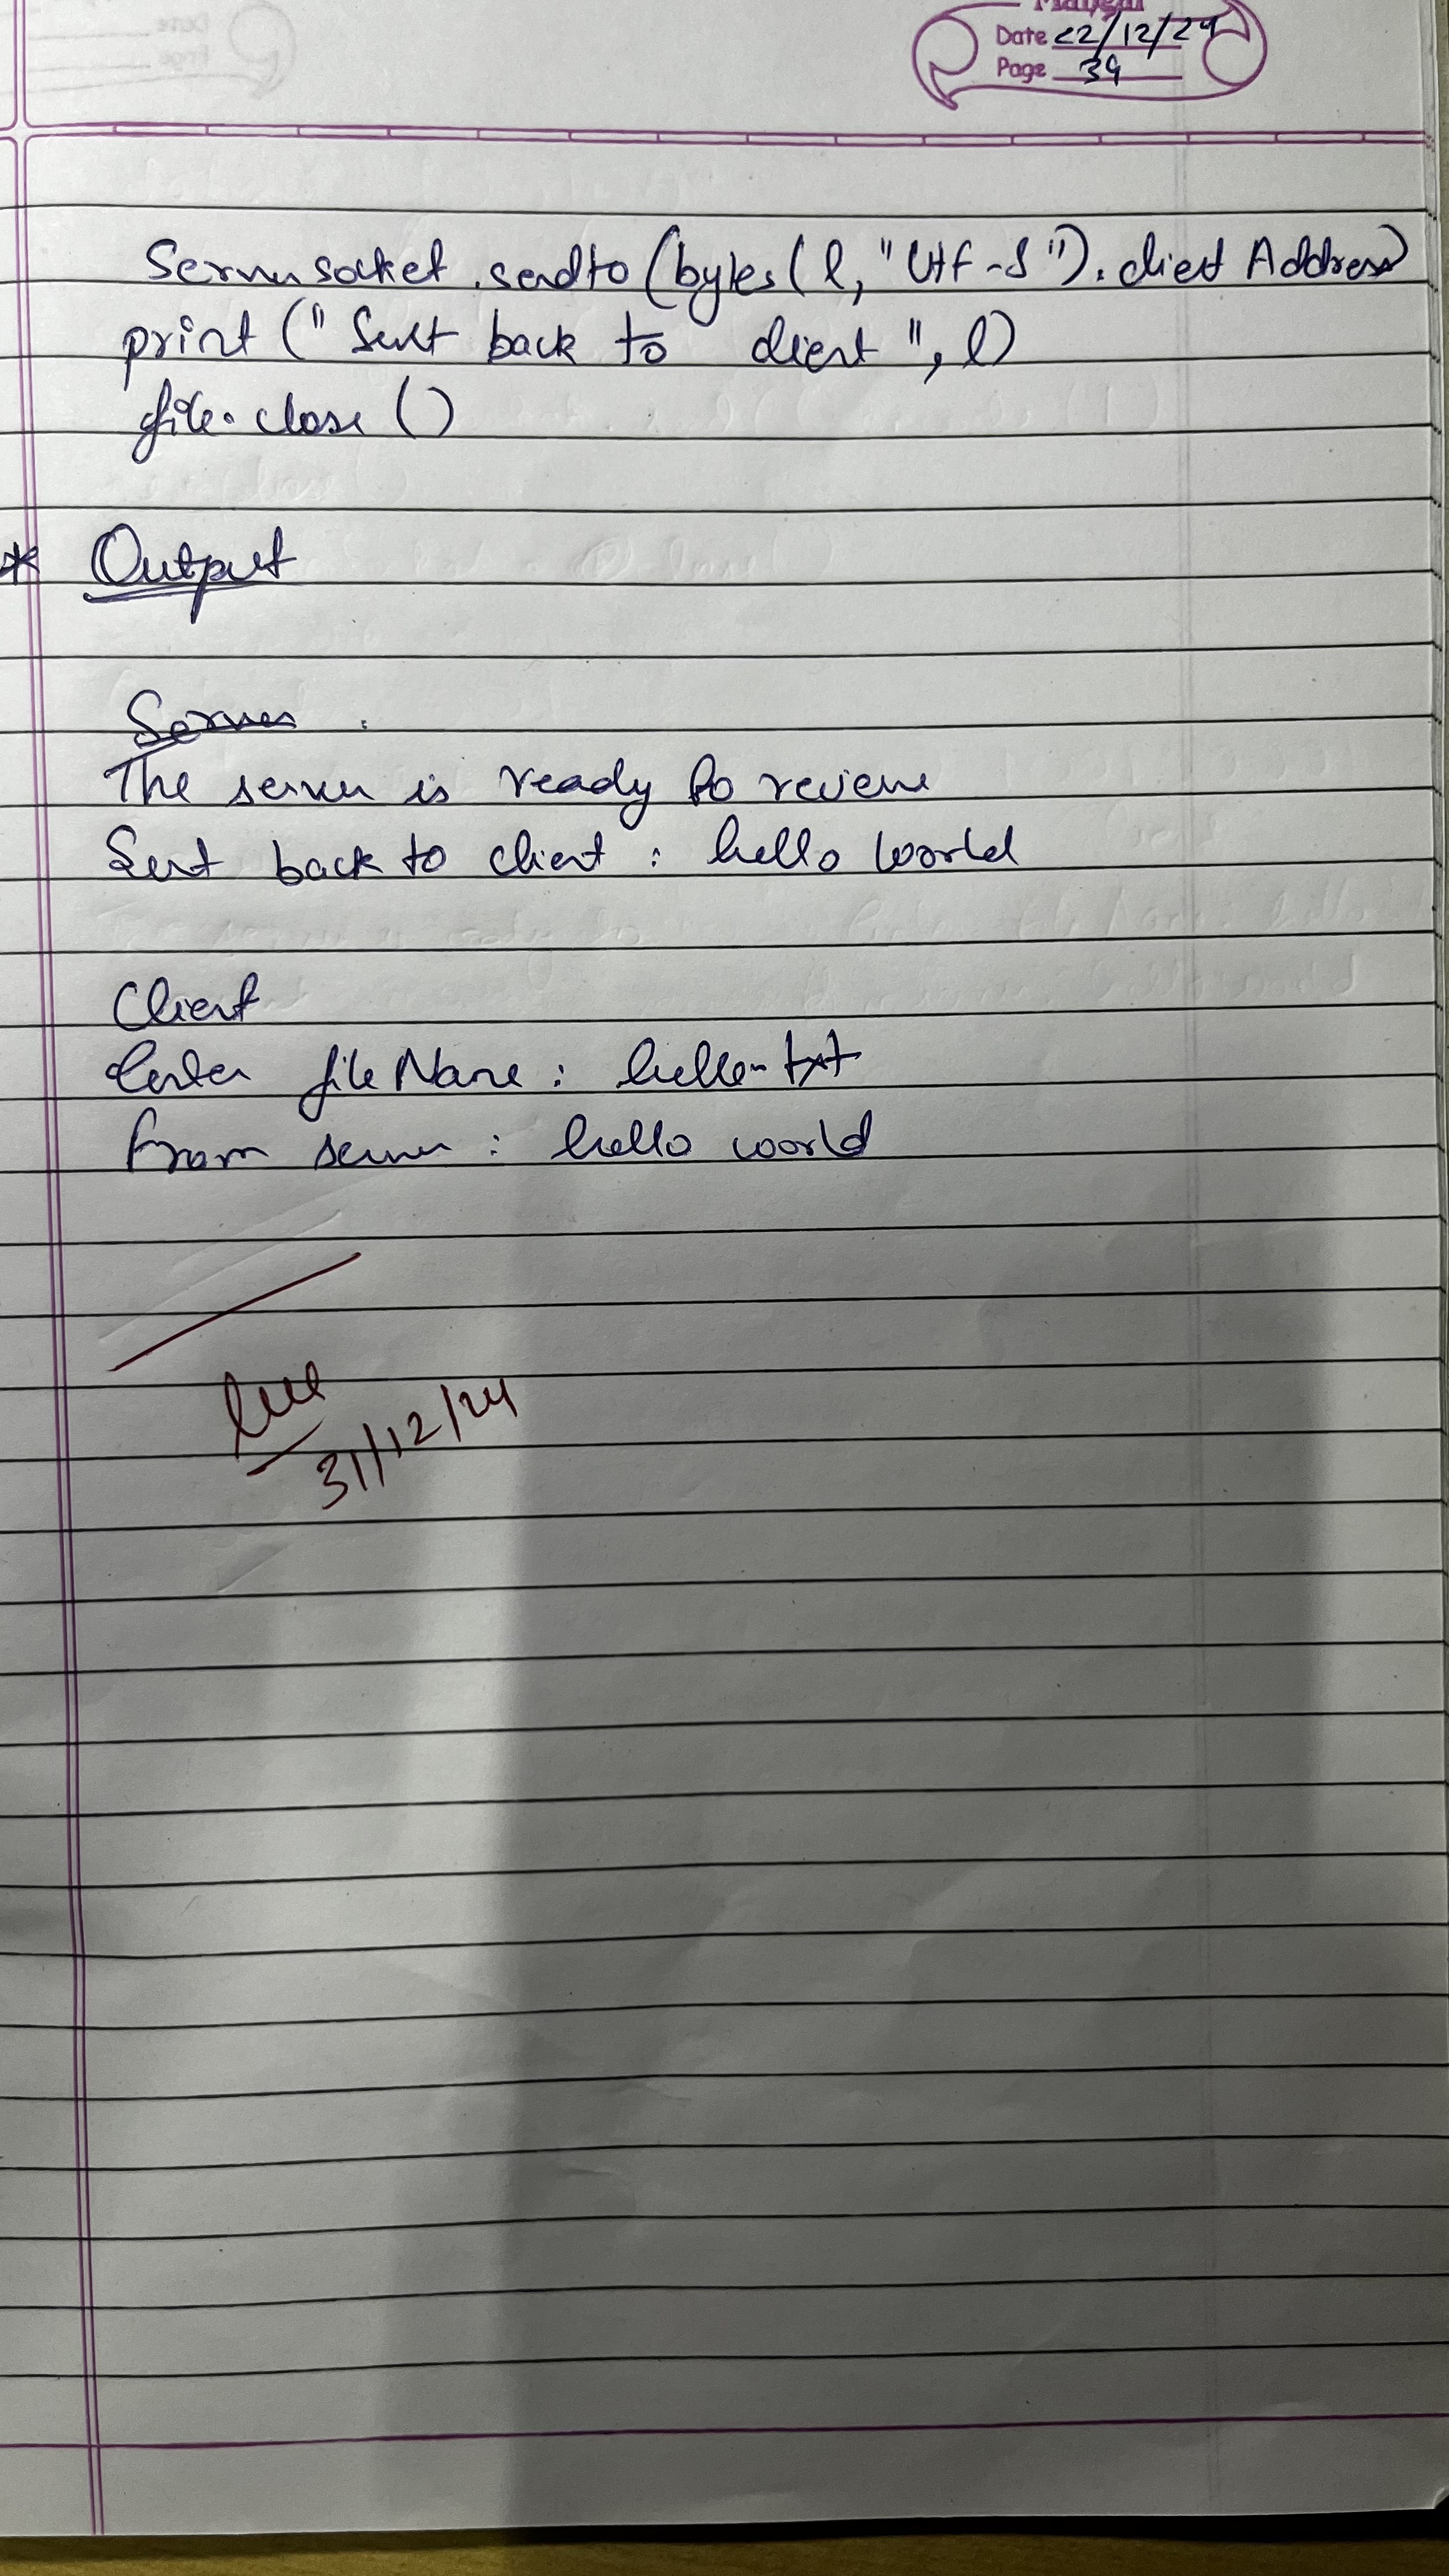 Date 22/12/24
Page 39
Serversocket.sendto(bytes(l, "Utf-8"), clientAddress)
print(" Sent back to client ", l)
file.close()
* Output
Server :
The server is ready to recieve
Sent back to client : hello world
Client
Enter fileName : hello.txt
From server : hello world
31/12/24